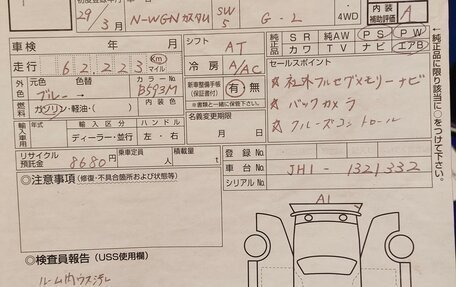 29/3月 N-WGNカスタム SW 5 G・L 4WD 内装 補助評価 A
車検 年 月 シフト AT 純正品 SR 純AW PS PW
カワ TV ナビ エアB
走行 62,223 km マイル 冷房 A/AC セールスポイント
外色 元色 色替 カラーNo. B593M
グレー→
新車整備手帳(保証書付) 有・無
※書類と一緒に保管して下さい。
☆ 社外フルセグメモリーナビ
☆ バックカメラ
☆ クルーズコントロール
燃料 ガソリン・軽油・( ) 内装色
名義変更期限 月 日
輸入車用 年式 輸入区分 ハンドル
ディーラー・並行 左・右
リサイクル預託金 8680円 乗車定員 人 積載量 t
登録No.
車台No. JH1-1321332
シリアルNo.
◎注意事項(修復・不具合箇所および状態等)
A1
◎検査員報告(USS使用欄)
ルーム内ウス汚レ
純正品に限り該当に○をつけて下さい。